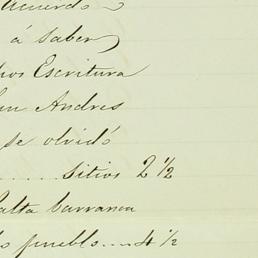 acuerdo
á saber
Escritura
Andres
se olvidó
...... Sitios 2 1/2
falta barranca
pueblo.... 4 1/2